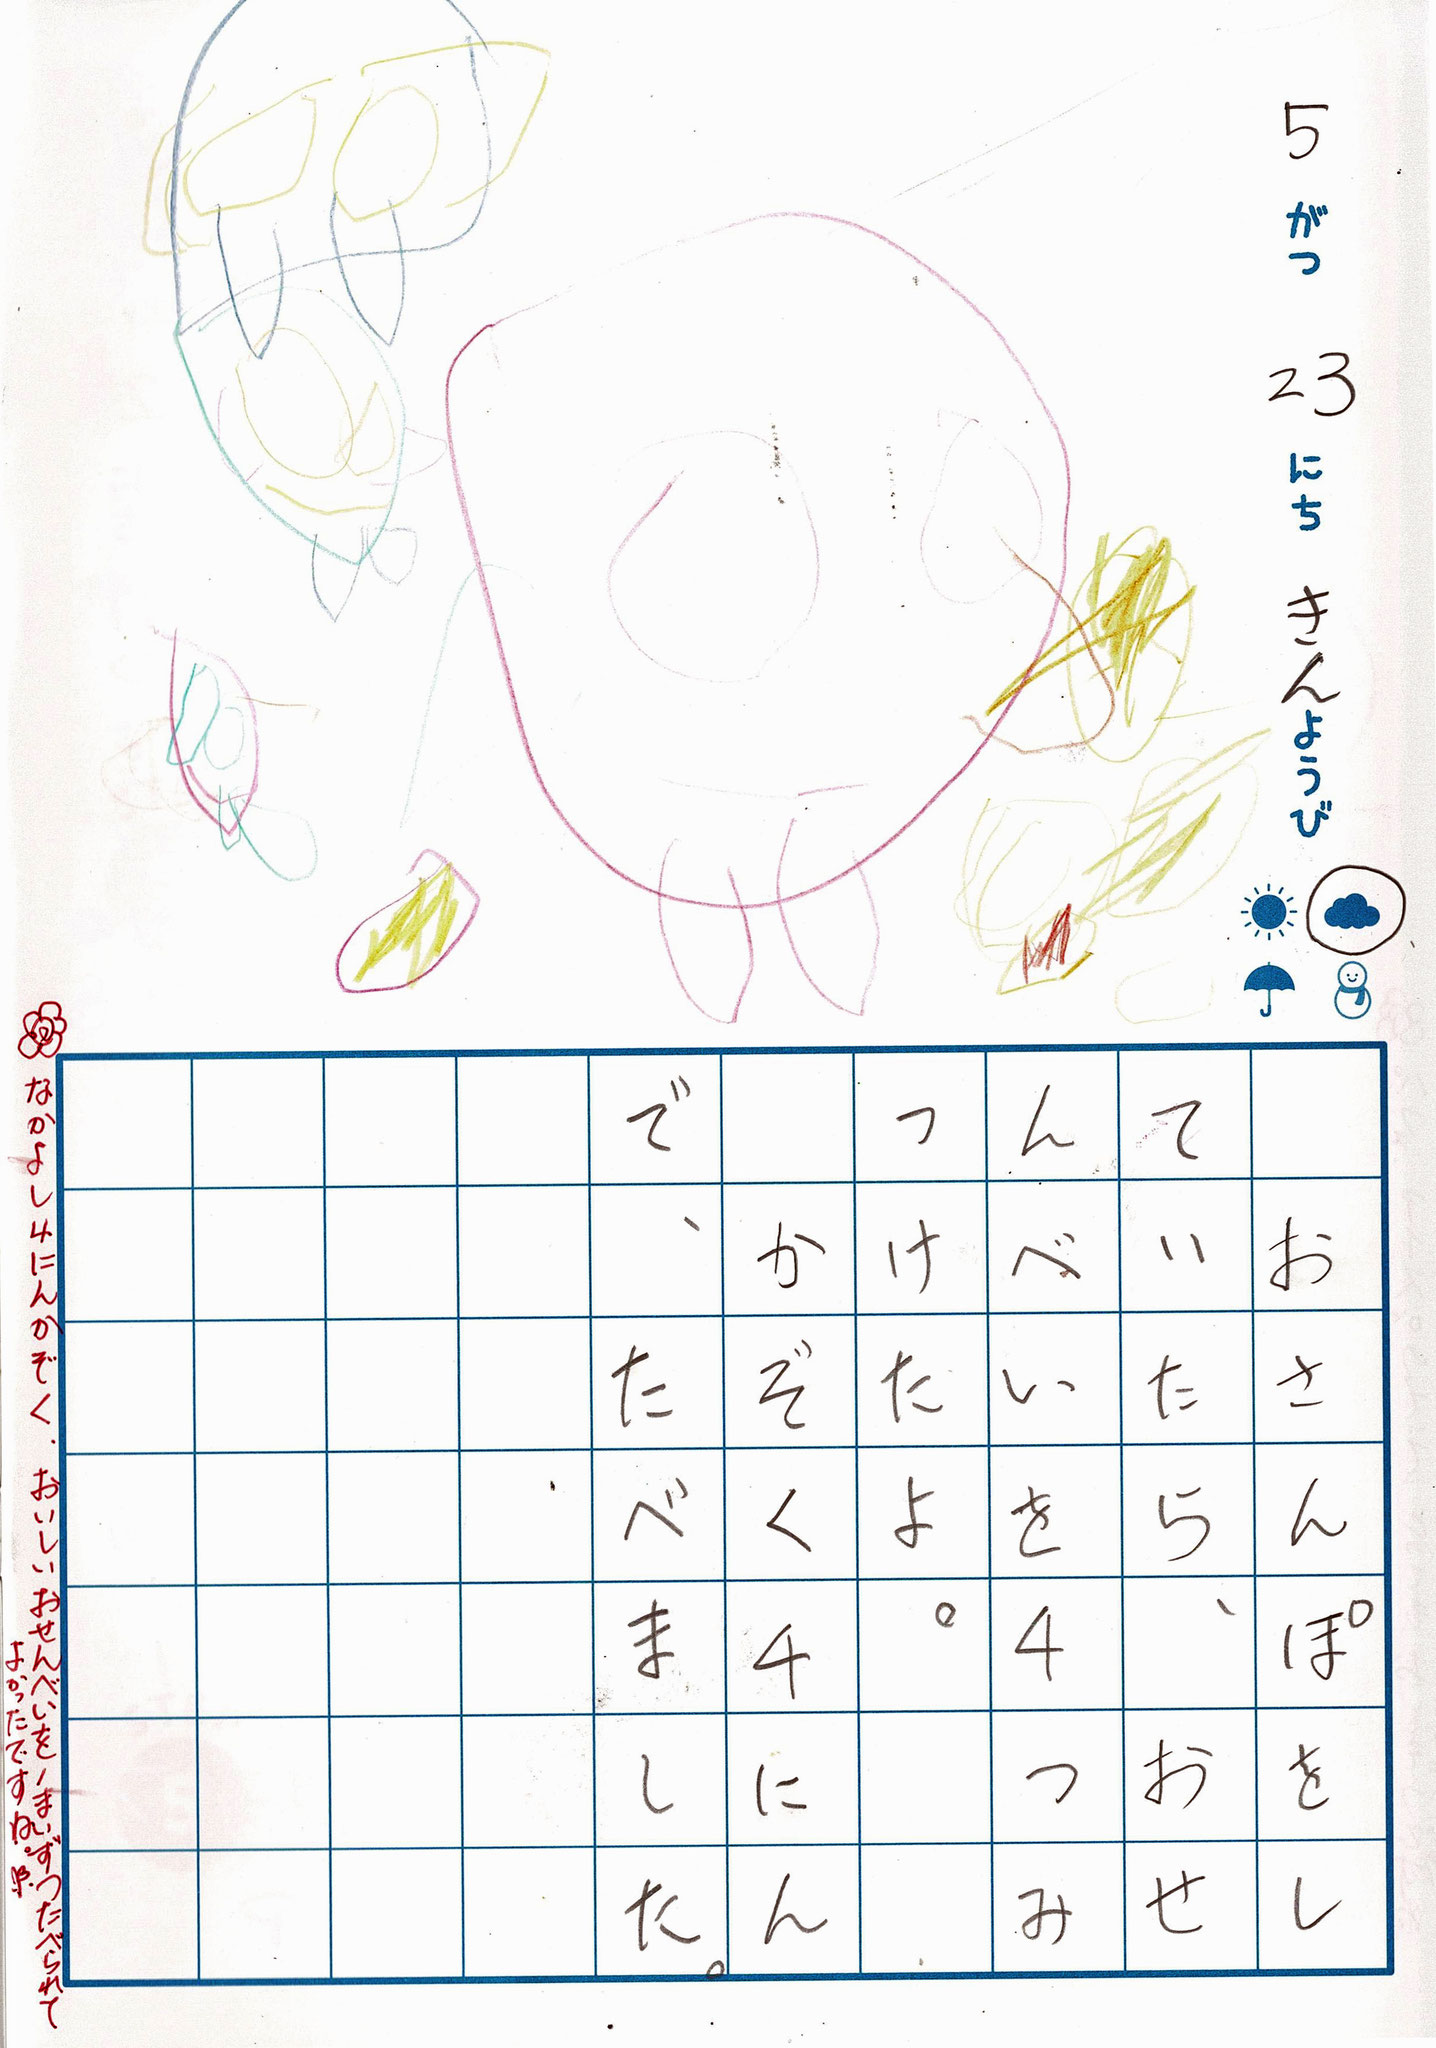 5がつ 23にち きんようび
おさんぽをし
ていたら、おせ
んべいを4つみ
つけたよ。
かぞく4にん
で、たべました。
なかよし4にんかぞく、おいしいおせんべいを1まいずつたべられて
よかったですね。